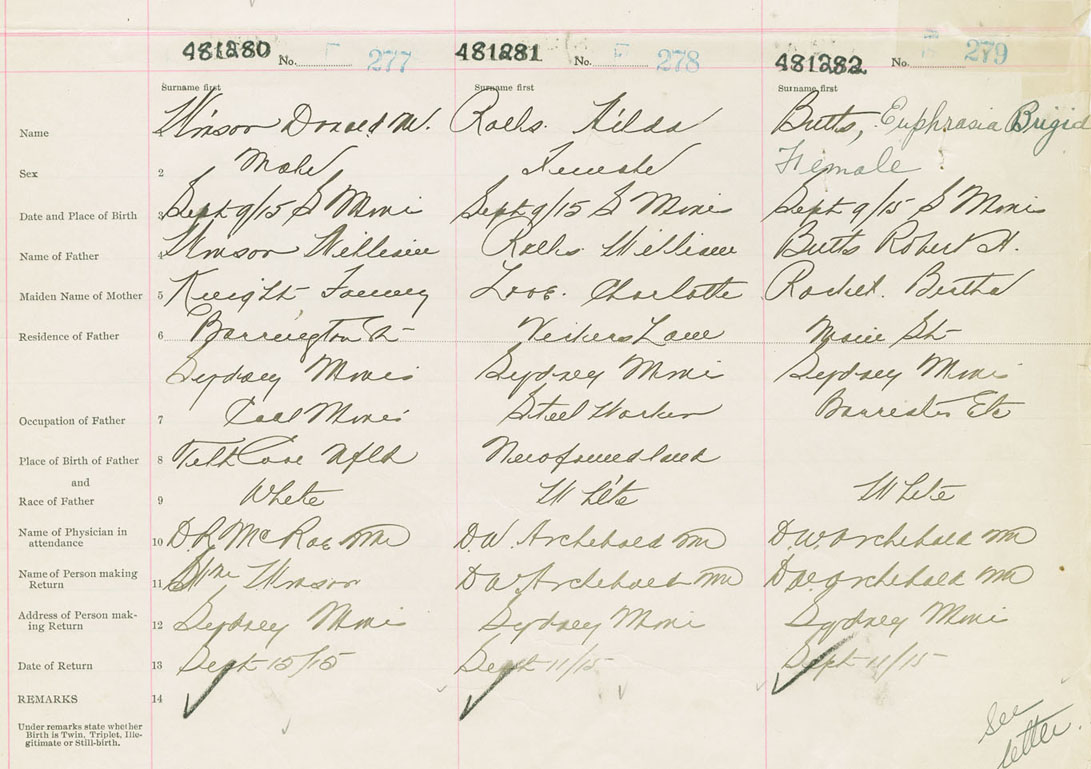 481280 No. 277 481281 No. 278 481282 No. 279
Surname first Surname first Surname first
Name Winsor Donald W. Rolls. Hilda Butts, Euphrasia Brigid
Sex 2 Male Female Female
Date and Place of Birth 3 Sept 9/15 S Mines Sept 9/15 S Mines Sept 9/15 S Mines
Name of Father 4 Winsor William Rolls William Butts Robert H.
Maiden Name of Mother 5 Knight Fanny Charlotte Bertha
Residence of Father 6 Barrington St Lane Main St
Sydney Mines Sydney Mines Sydney Mines
Occupation of Father 7 Coal Miner Steel Worker Barrister Etc
Place of Birth of Father 8 Tilt Cove Nfld Newfoundland
and
Race of Father 9 White White White
Name of Physician in
attendance 10 D.R. McRae MD D.W. Archibald MD D.W. Archibald MD
Name of Person making
Return 11 Wm Winsor D W Archibald MD D.W. Archibald MD
Address of Person mak-
ing Return 12 Sydney Mines Sydney Mines Sydney Mines
Date of Return 13 Sept 15/15 Sept 11/15 Sept 11/15
REMARKS 14
Under remarks state whether
Birth is Twin, Triplet, Ille-
gitimate or Still-birth.
See
letter.